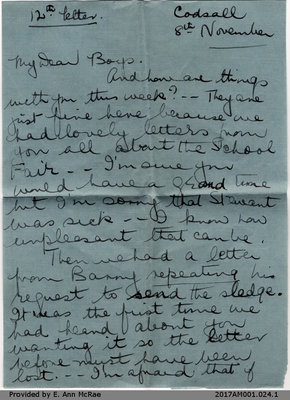 12th letter.
Codsall
8th November
My Dear Boys.
And how are things
with you this week? -- They are
just fine here because we
had lovely letters from
you all about the School
Fair -- I'm sure you
would have a grand time
but I'm sorry that Stewart
was sick -- I know how
unpleasant that can be.
Then we had a letter
from Barry repeating his
request to send the sledge.
It was the first time we
had heard about you
wanting it so the letter
before must have been
lost. -- I'm afraid that if
Provided by E. Ann McRae
2017AM001.024.1